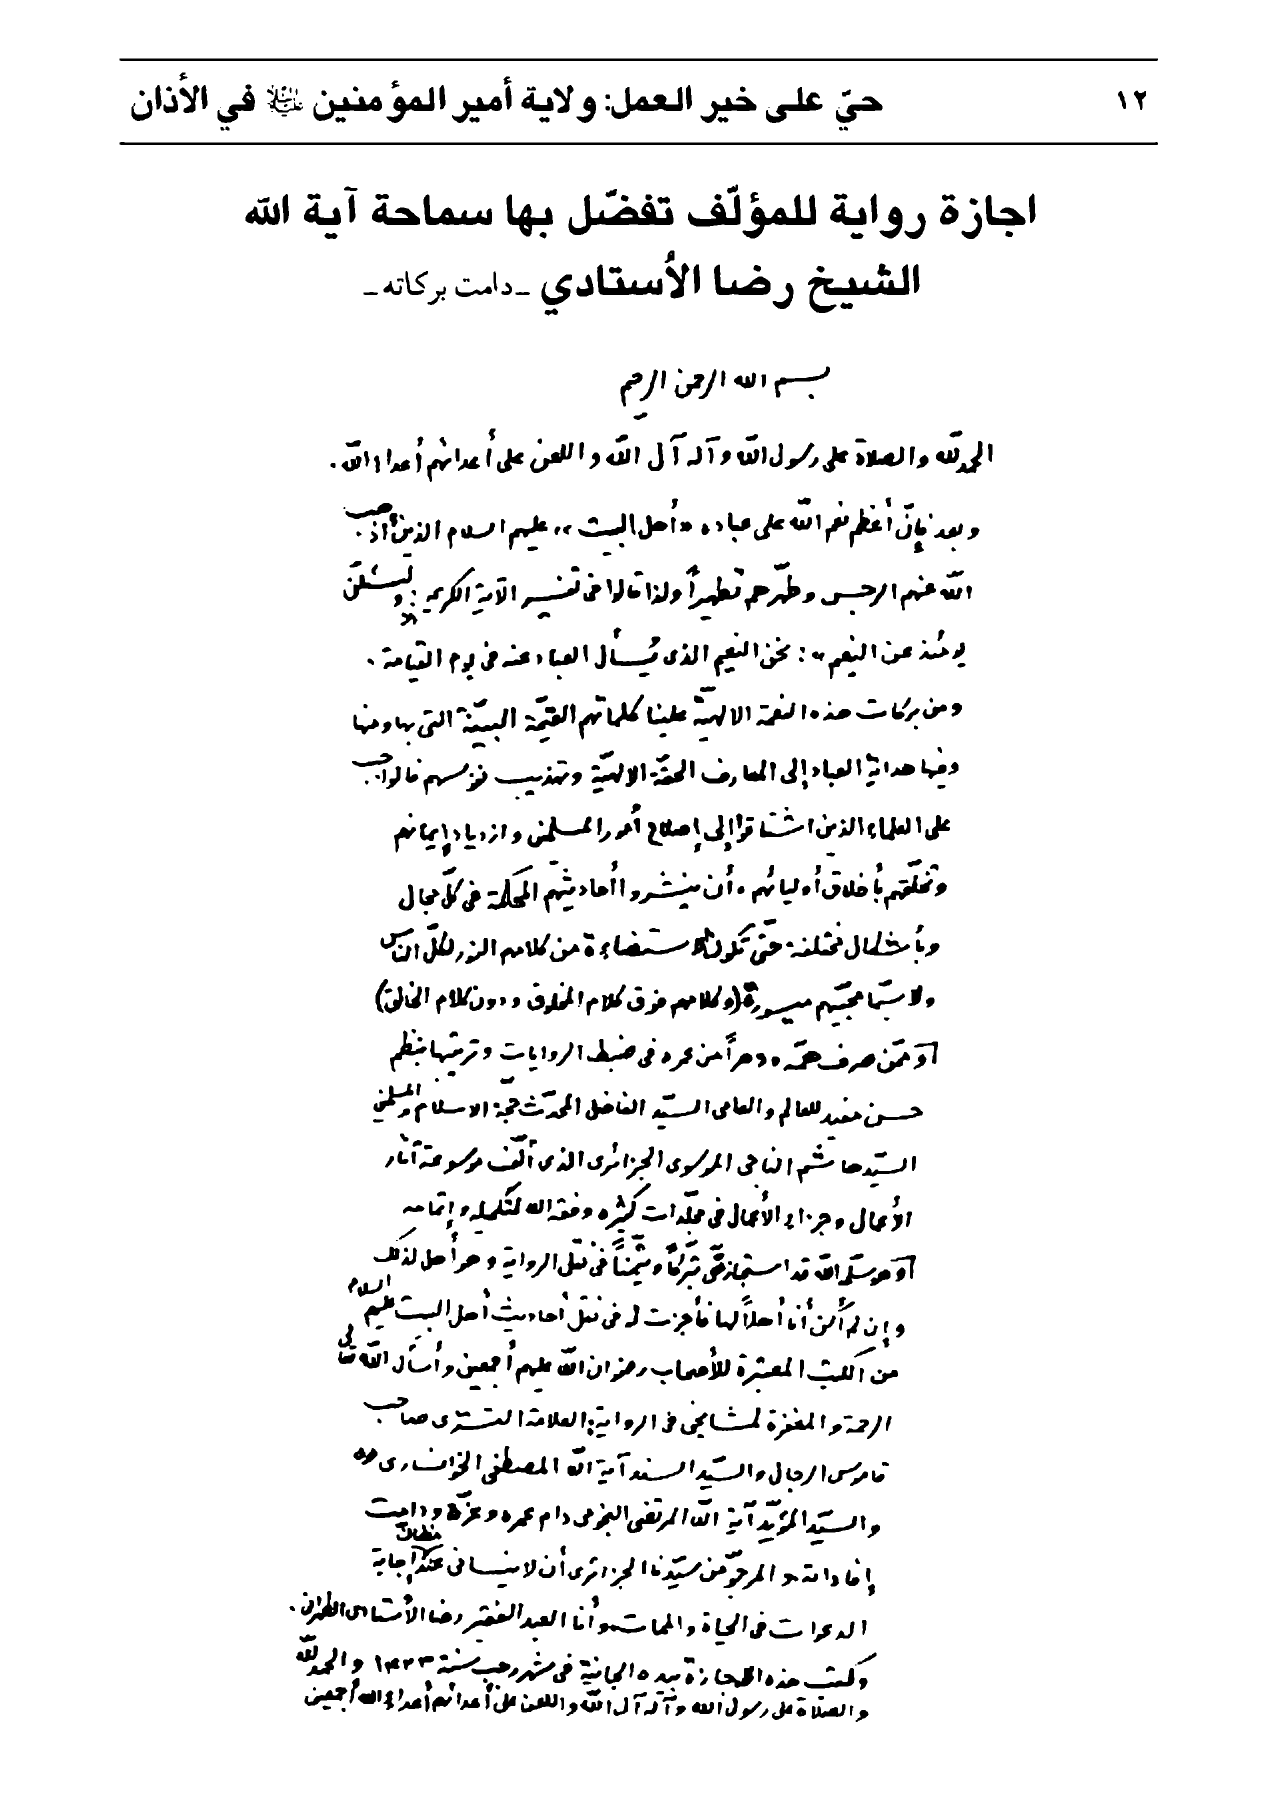 ١٢
حيّ على خير العمل: ولاية أمير المؤمنين عليه السلام في الأذان
اجازة رواية للمؤلّف تفضّل بها سماحة آية الله
الشيخ رضا الأستادي ـ دامت بركاته ـ
بسم الله الرحمن الرحيم
الحمد لله والصلاة على رسول الله وآله آل الله واللعن على أعدائهم أعداء الله.
وبعد فإنّ أعظم نعم الله على عباده «أهل البيت» عليهم السلام الذين أذهب
الله عنهم الرجس وطهّرهم تطهيراً ولذا قالوا في تفسير الآية الكريمة: ولتسئلنّ
يومئذ عن النعيم»: نحن النعيم الذي يُسأل العباد عنه في يوم القيامة.
ومن بركات هذه النعمة الالهيّة علينا كلماتهم القيّمة البيّنة التي بها ومنها
وفيها هداية العباد إلى المعارف الحقّة الالهيّة وتهذيب نفوسهم فالواجب
على العلماء الذين اشتاقوا إلى إصلاح أمور المسلمين وازدياد إيمانهم
وتخلّقهم بأخلاق أوليائهم، أن ينشروا أحاديثهم المحكمة في كلّ مجال
وبأشكال مختلفة حتّى تكون الاستضاءة من كلامهم النور لكلّ الناس
ولا سيّما محبّيهم ميسورة (وكلامهم فوق كلام المخلوق ودون كلام الخالق)
وممّن صرف همّه ودهراً من عمره في ضبط الروايات وترتيبها بنظم
حسن مفيد للعالم والعامي السيّد الفاضل المحدّث حجّة الاسلام والمسلمين
السيّد هاشم الناجي الموسوي الجزائري الذي ألّف موسوعة آثار
الأعمال وجزاء الأعمال في مجلّدات كثيره وفقه الله لتكميله وإتمامه
وهو سلّمه الله قد استجازني تبرّكاً وتيمّناً في نقل الرواية وهو أهل لذلك
وإن لم أكن أنا أهلاً لها فأجزت له في نقل أحاديث أهل البيت عليهم السلام
من الكتب المعتبرة للأصحاب رضوان الله عليهم أجمعين وأسأل الله تعالى
الرحمة والمغفرة لمشايخي في الرواية: العلامة التستري صاحب
قاموس الرجال والسيّد السند آية الله المصطفى الخوانساري ره
والسيّد المؤيّد آية الله المرتضى النجومي دام عمره وعزّه ودامت
إفاداته والمرجوّ من سيّدنا الجزائري أن لا ينساني عند مظانّ إجابة
الدعوات في الحياة والممات وأنا العبد الفقير رضا الأستادي الطهراني.
وكتبت هذه الاجازة بيده الجانية في شهر رجب سنة ١٤٢٣ والحمد لله
والصلاة على رسول الله وآله آل الله واللعن على أعدائهم أعداء الله أجمعين